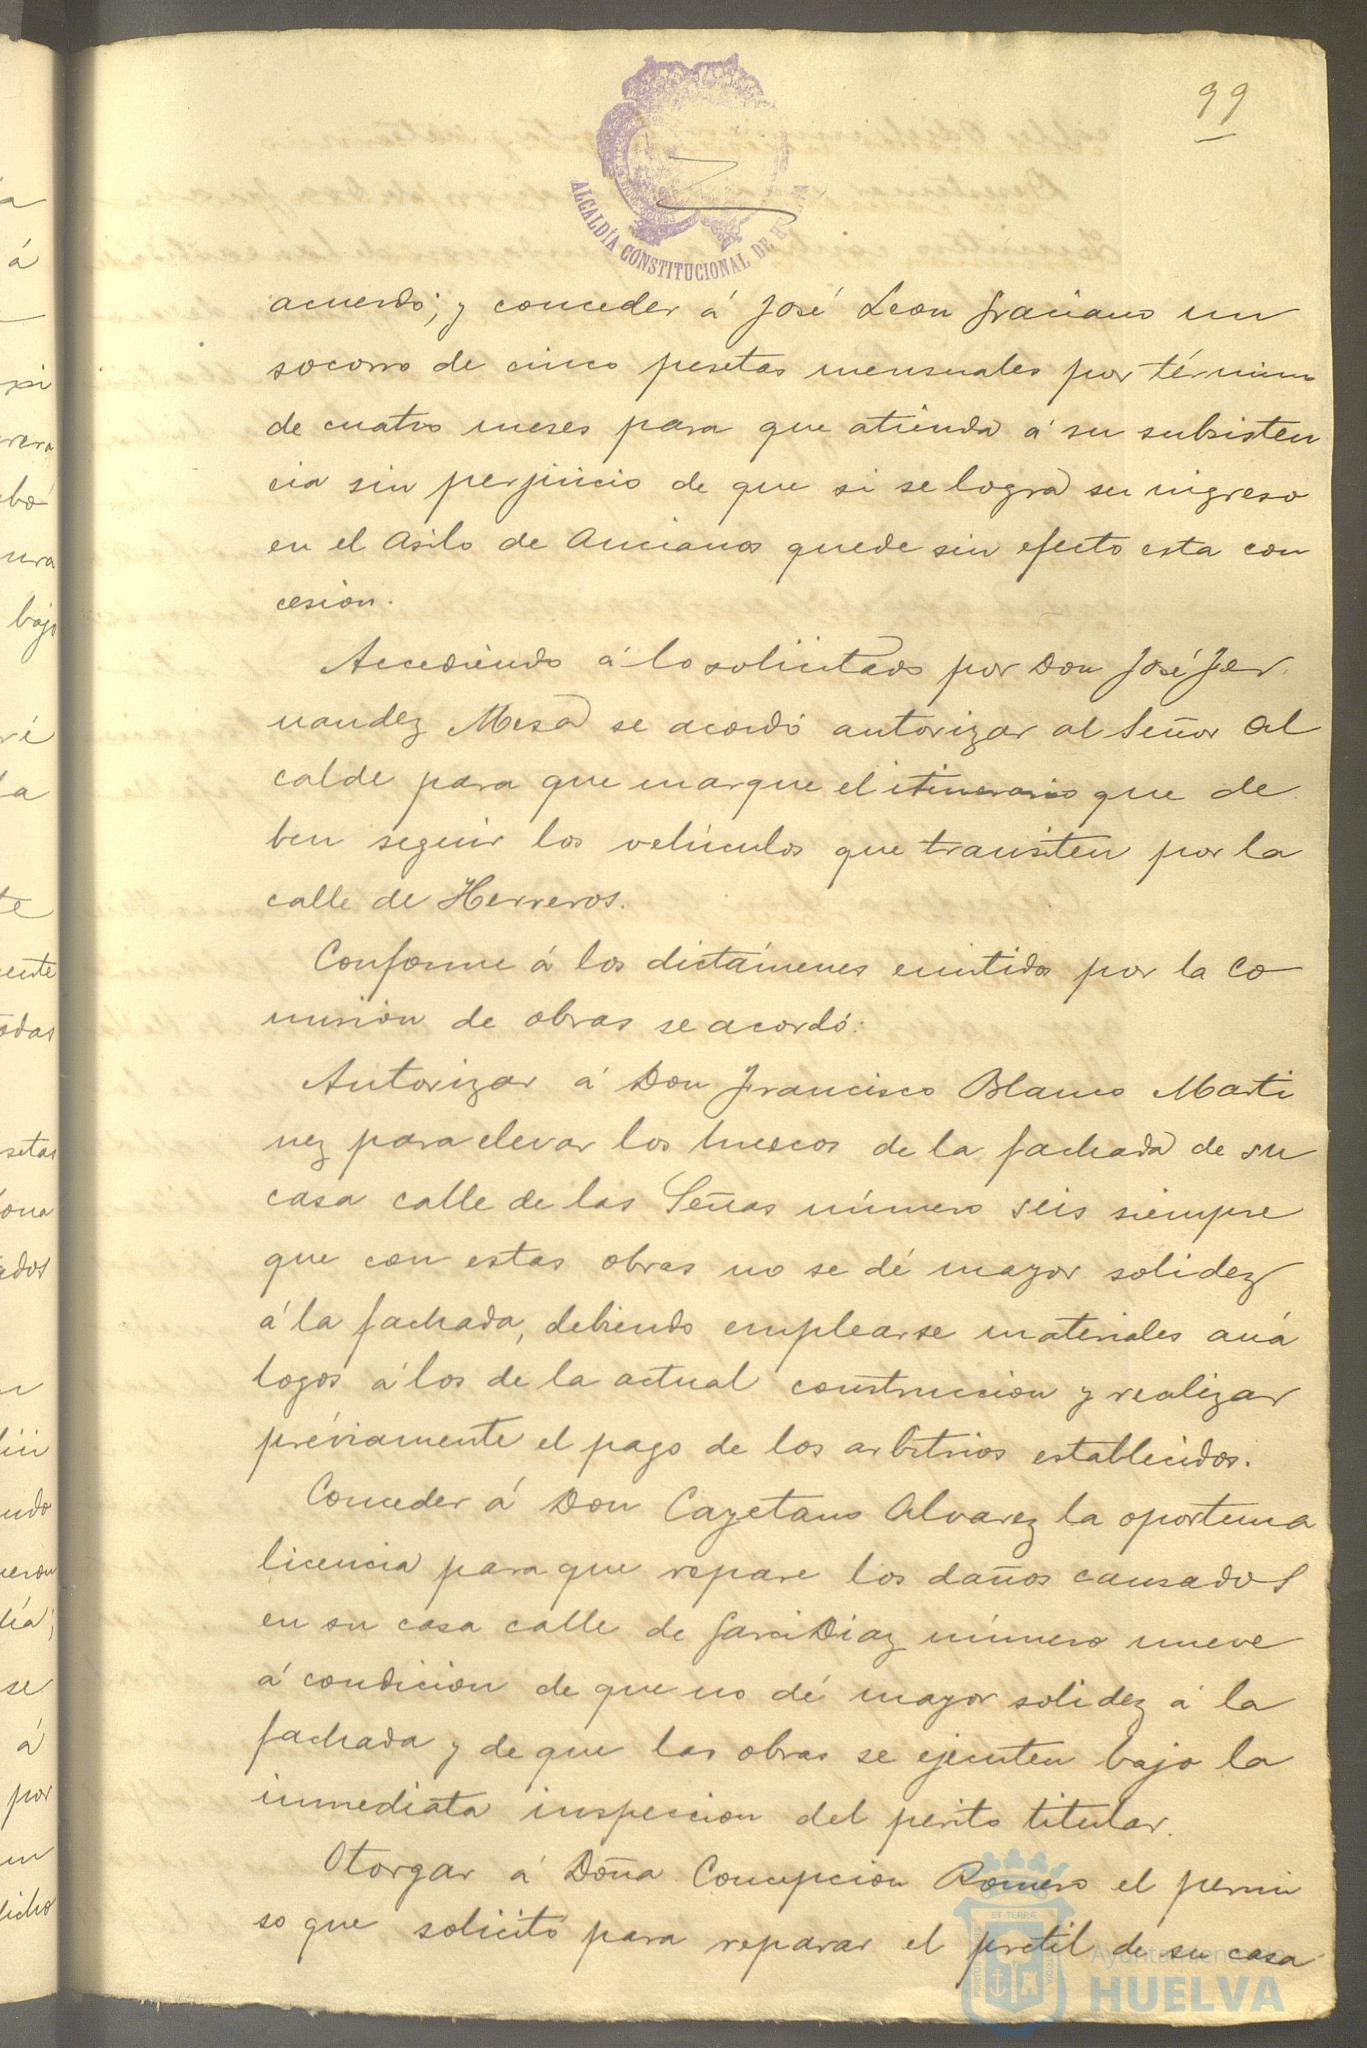 99
ALCALDÍA CONSTITUCIONAL DE HUELVA
acuerdo; y conceder á José Leon Graciano un
socorro de cinco pesetas mensuales por término
de cuatro meses para que atienda á su subsisten
cia sin perjuicio de que si se logra su ingreso
en el Asilo de Ancianos quede sin efecto esta con
cesion.
Accediendo á lo solicitado por Don José Fer
nandez Mesa se acordó autorizar al Señor Al
calde para que marque el itinerario que de
ben seguir los vehiculos que transiten por la
calle de Herreros.
Conforme á los dictámenes emitidos por la Co
mision de obras se acordó:
Autorizar á Don Francisco Blanco Marti
nez para elevar los huecos de la fachada de su
casa calle de las Señas número seis siempre
que con estas obras no se dé mayor solidez
á la fachada, debiendo emplearse materiales aná
logos á los de la actual construccion y realizar
préviamente el pago de los arbitrios establecidos.
Conceder á Don Cayetano Alvarez la oportuna
licencia para que repare los daños causados
en su casa calle de Garci Diaz número nueve
á condicion de que no dé mayor solidez á la
fachada y de que las obras se ejecuten bajo la
inmediata inspeccion del perito titular.
Otorgar á Doña Concepcion Romero el permi
so que solicitó para reparar el pretil de su casa
Ayuntamiento
HUELVA